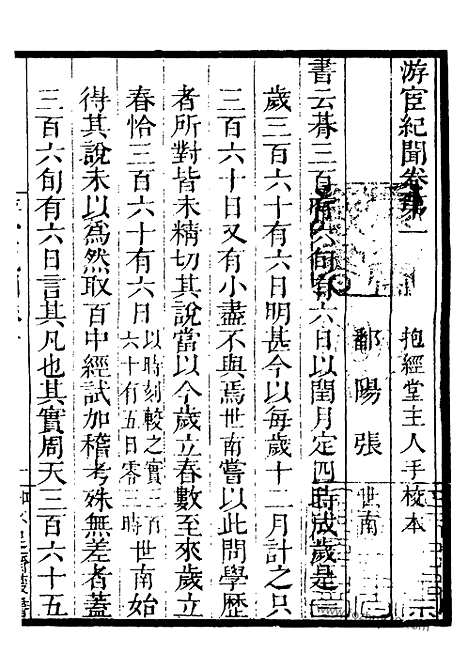 游宦紀聞卷第一
抱經堂主人手校本
鄱陽張 世南
書云朞三百有六旬有六日以閏月定四時成歲是一
歲三百六十有六日明甚今以每歲十二月計之只
三百六十日又有小盡不與焉世南嘗以此問學歷
者所對皆未精切其說當以今歲立春數至來歲立
春恰三百六十有六日以時刻較之實三百六十有五日零三時世南始
得其說未以為然取百中經試加稽考殊無差者蓋
三百六旬有六日言其凡也其實周天三百六十五